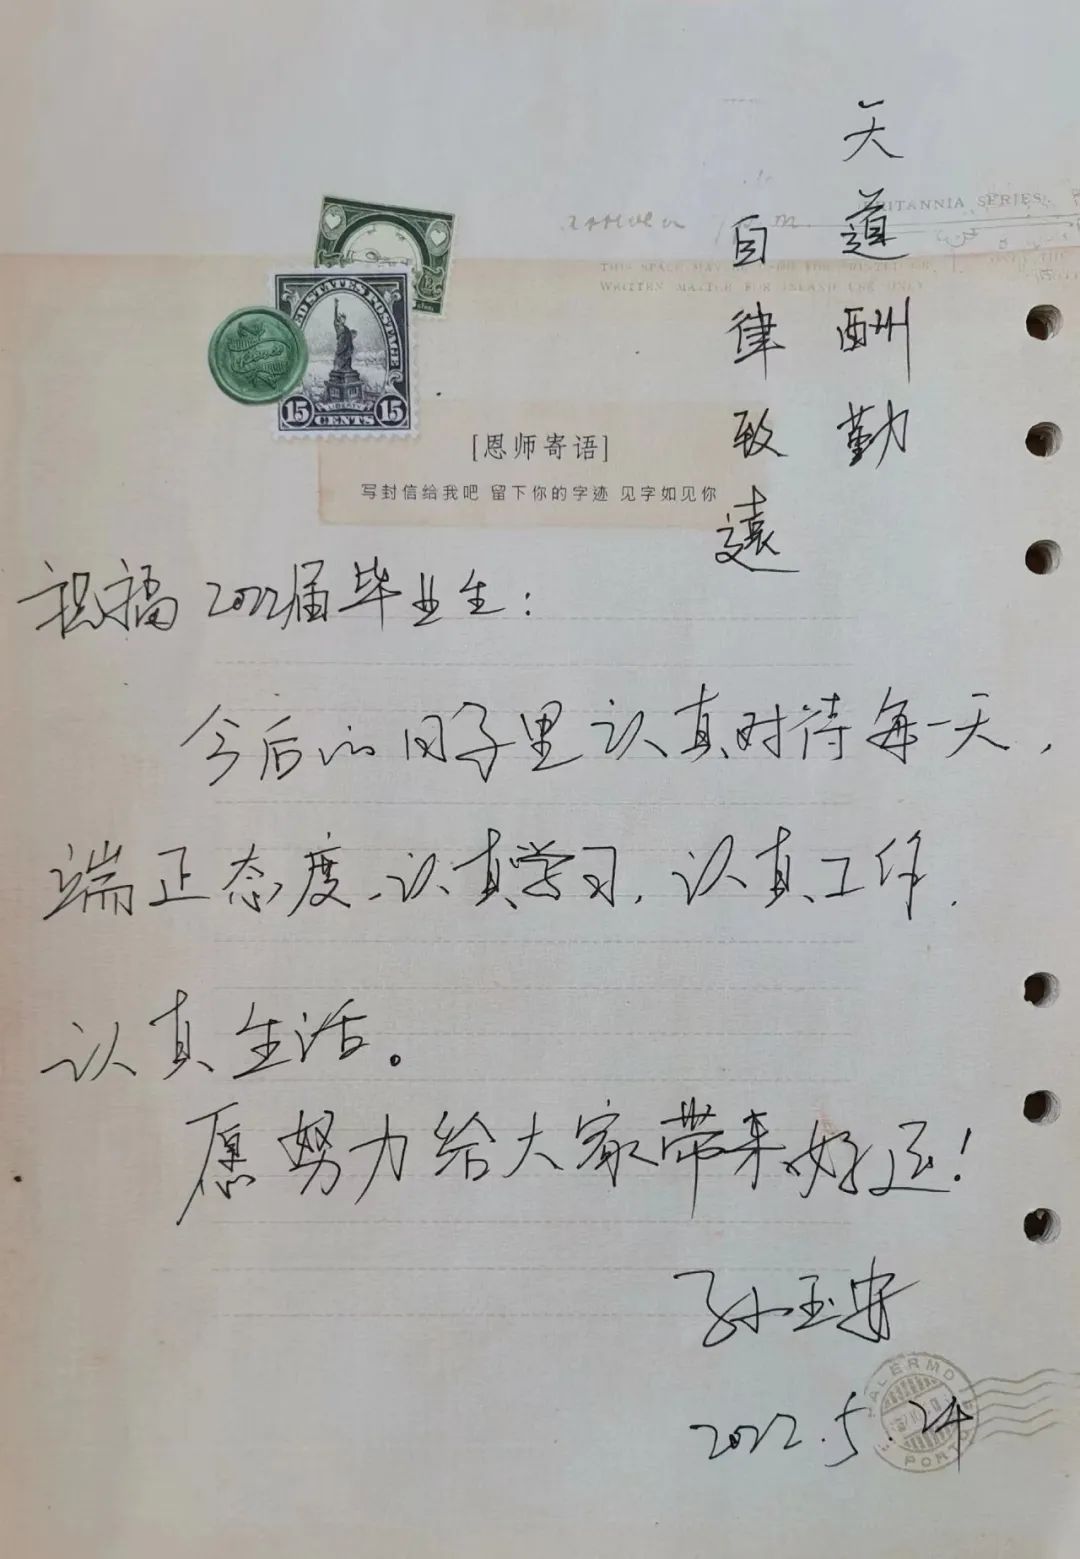 天道酬勤
自律致远
BRITANNIA SERIES
WRITTEN MATTER FOR INLAND USE ONLY
UNITED STATES POSTAGE
LIBERTY
15 CENTS 15
[恩师寄语]
写封信给我吧 留下你的字迹 见字如见你
祝福2022届毕业生:
今后的日子里认真对待每一天,
端正态度、认真学习,认真工作,
认真生活。
愿努力给大家带来好运!
孙玉安
2022.5.24